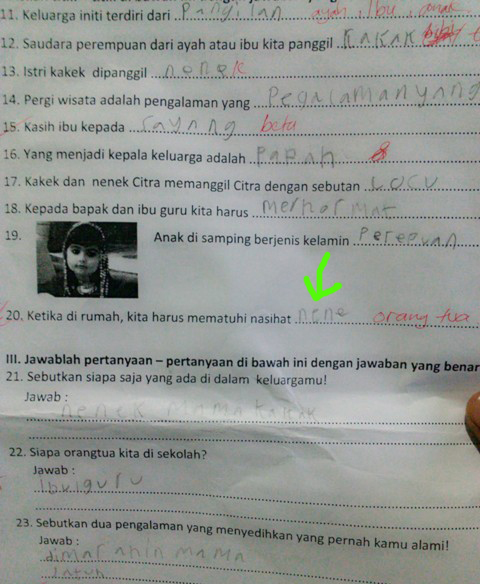 11. Keluarga initi terdiri dari Pangilan ayah, Ibu, anak
12. Saudara perempuan dari ayah atau ibu kita panggil KAKAK
13. Istri kakek dipanggil nenek
14. Pergi wisata adalah pengalaman yang Pegalamanyang
15. Kasih ibu kepada Sayang beta
16. Yang menjadi kepala keluarga adalah Papah
17. Kakek dan nenek Citra memanggil Citra dengan sebutan CUCU
18. Kepada bapak dan ibu guru kita harus Merhormat
19. Anak di samping berjenis kelamin Perepuan
20. Ketika di rumah, kita harus mematuhi nasihat nene orang tua
III. Jawablah pertanyaan – pertanyaan di bawah ini dengan jawaban yang benar
21. Sebutkan siapa saja yang ada di dalam keluargamu!
Jawab :
nenek mama kakak
22. Siapa orangtua kita di sekolah?
Jawab :
Ibuiguru
23. Sebutkan dua pengalaman yang menyedihkan yang pernah kamu alami!
Jawab :
dimarahin mama
Jatuh